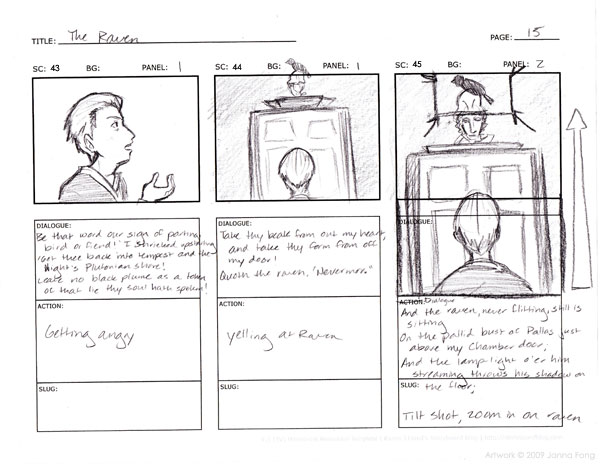 TITLE: The Raven
PAGE: 15
SC: 43 BG: PANEL: 1
DIALOGUE:
Be that word our sign of parting,
bird or fiend!" I shrieked, upstarting
"Get thee back into tempest and the
Night's Plutonian shore!
Leave no black plume as a token
of that lie thy soul hath spoken!
ACTION:
Getting angry
SLUG:
SC: 44 BG: PANEL: 1
DIALOGUE:
Take thy beak from out my heart,
and take thy form from off
my door!
Quoth the raven, "Nevermore"
ACTION:
yelling at Raven
SLUG:
SC: 45 BG: PANEL: 2
DIALOGUE:
ACTION: Dialogue
And the raven, never flitting, still is
sitting
On the pallid bust of Pallas just
above my chamber door;
And the lamp light o'er him
streaming throws his shadow on
SLUG: the floor;
Tilt shot, zoom in on raven
Artwork © 2009 Janna Fong